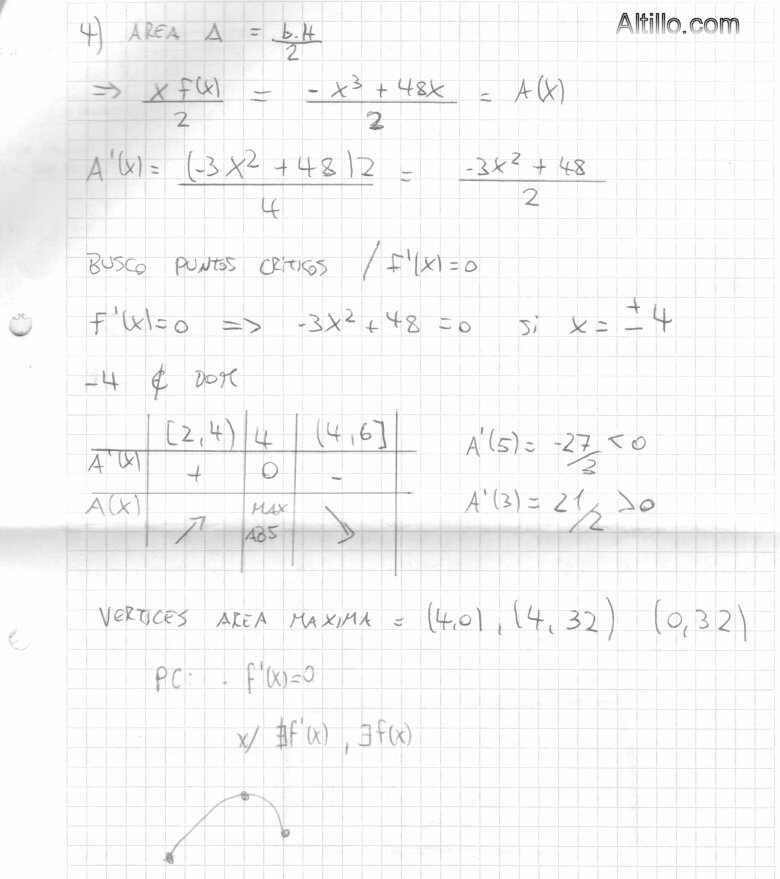 Altillo.com
4) AREA Δ = b.H/2
=> x f(x)/2 = -x³ + 48x/2 = A(x)
A'(x) = (-3x² + 48)2/4 = -3x² + 48/2
BUSCO PUNTOS CRITICOS / f'(x)=0
f'(x)=0 => -3x² + 48 = 0 si x = ± 4
-4 ∉ DOM
[2,4) 4 (4,6]
A'(x) + 0 -
A(x) ↗ MAX ABS ↘
A'(5) = -27/3 < 0
A'(3) = 21/2 > 0
VERTICES AREA MAXIMA = (4,0), (4, 32) (0,32)
PC: . f'(x)=0
x/ ∄f'(x), ∃f(x)